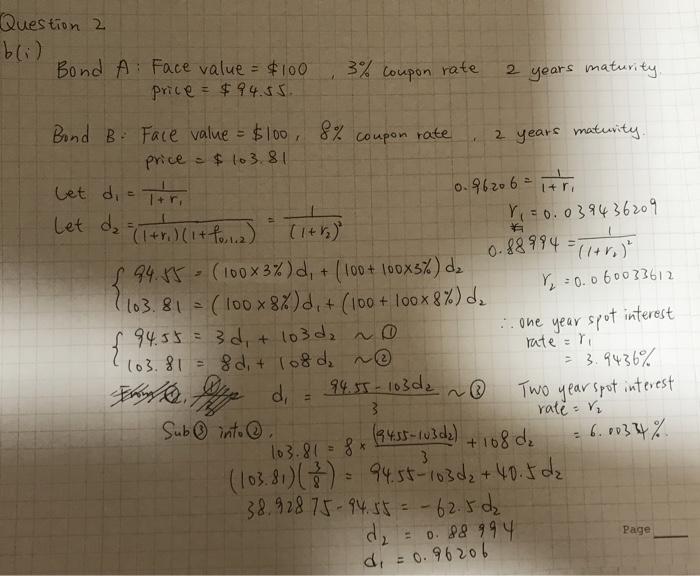 Question 2
b(i)
Bond A: Face value = $100, 3% coupon rate 2 years maturity.
price = $94.55.
Bond B: Face value = $100, 8% coupon rate, 2 years maturity.
price = $103.81
Let d₁ = 1/(1+r₁)
Let d₂ = 1/((1+r₁)(1+f₀,₁,₂)) = 1/(1+r₂)²
{ 94.55 = (100×3%)d₁ + (100+100×3%)d₂
103.81 = (100×8%)d₁ + (100+100×8%)d₂
{ 94.55 = 3d₁ + 103d₂ ~ ①
103.81 = 8d₁ + 108d₂ ~ ②
d₁ = (94.55-103d₂)/3 ~ ③
Sub ③ into ②,
103.81 = 8 × (94.55-103d₂)/3 + 108d₂
(103.81)(3/8) = 94.55-103d₂ + 40.5d₂
38.92875-94.55 = -62.5d₂
d₂ = 0.88994
d₁ = 0.96206
0.96206 = 1/(1+r₁)
r₁ = 0.039436209
0.88994 = 1/(1+r₂)²
r₂ = 0.060033612
∴ one year spot interest
rate = r₁
= 3.9436%
Two year spot interest
rate = r₂
= 6.00334%.
Page